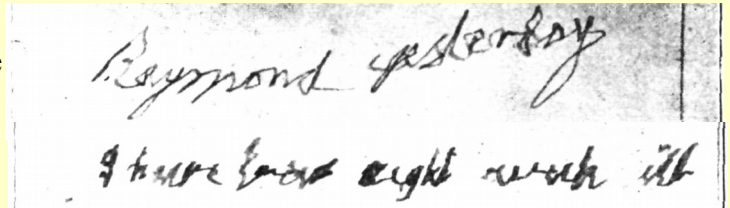 Raymond yesterday
I have been eight weeks ill